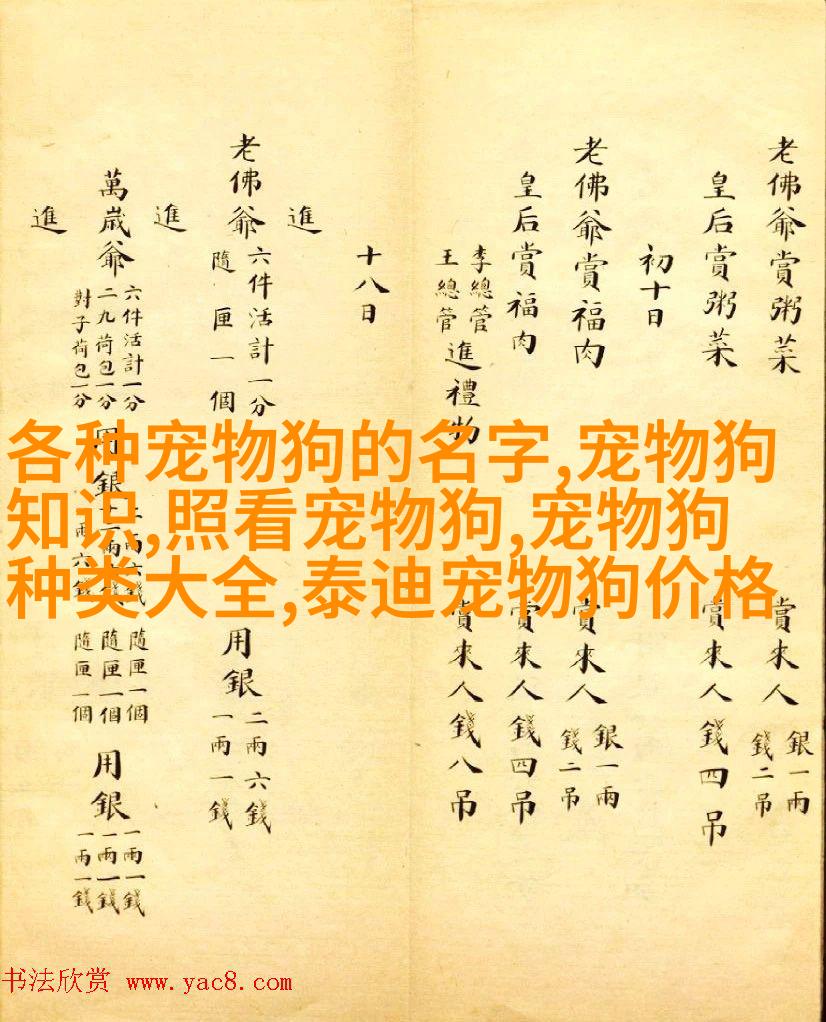 老佛爺賞粥菜 賞來人 銀一兩 錢二吊
皇后賞粥菜 賞來人錢四吊
初十日
老佛爺賞福肉 賞來人 銀一兩 錢二吊
皇后賞福肉 賞來人錢四吊
李總管 王總管 進禮物 賞來人錢八吊
十八日
進
老佛爺 六件活計一分 隨匣一個 用銀 二兩六錢 一兩一錢
進
萬歲爺 六件活計一分 二九荷包一分 對子荷包一分 用銀 二兩六錢 隨匣一個 隨匣一個 隨匣一個 用銀 一兩一錢 一兩一錢 一兩一錢
進
各种宠物狗的名字,宠物狗
知识,照看宠物狗,宠物狗
种类大全,泰迪宠物狗价格
书法欣赏 www.yac8.com